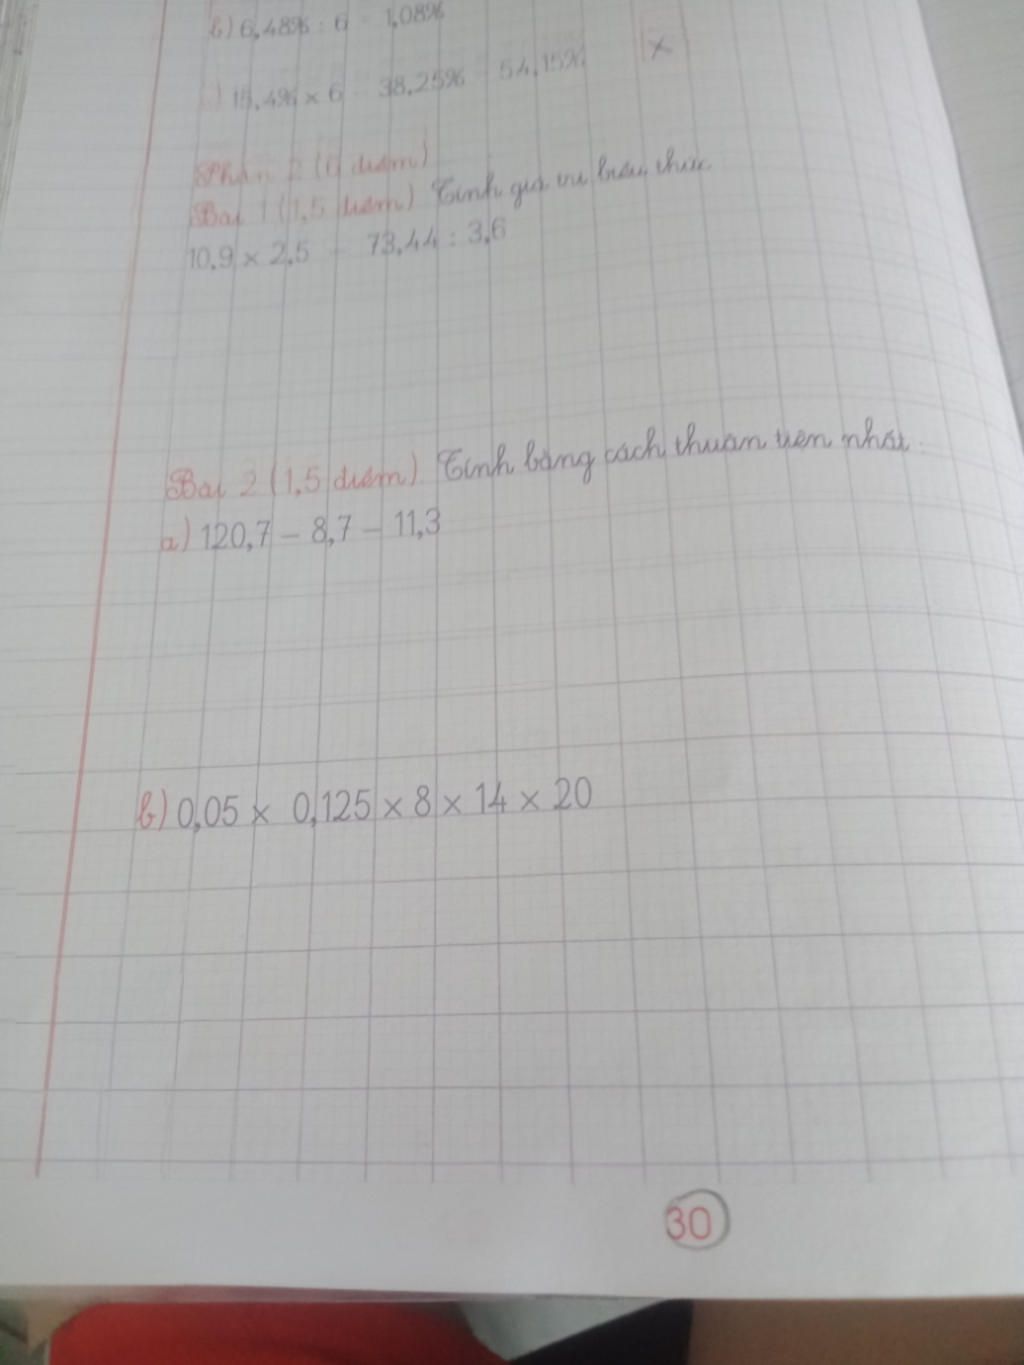 b) 6,48% : 6 = 1,08%
c) 15,4% × 6 - 38,25% = 54,15% x
Phần 2 (6 điểm)
Bài 1 (1,5 điểm) Tính giá trị biểu thức
10,9 × 2,5 - 73,44 : 3,6
Bài 2 (1,5 điểm). Tính bằng cách thuận tiện nhất.
a) 120,7 - 8,7 - 11,3
b) 0,05 × 0,125 × 8 × 14 × 20
30